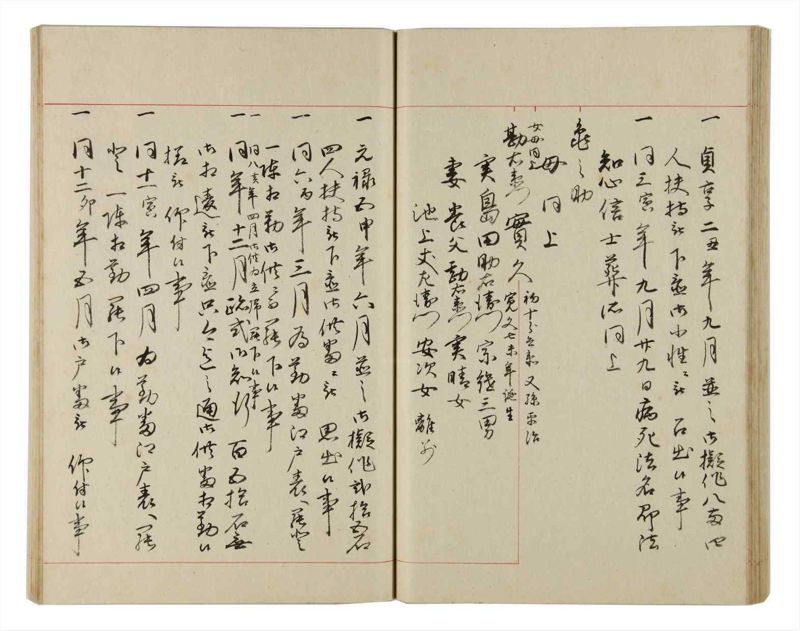 一 貞享二丑年九月並之御擬作八両四
人扶持被下置御小性被召出候事
一 同三寅年九月廿九日病死法名即法
知心信士葬所同上
亀之助
母同上
女母同上
勘右衛門 實久
初十兵衛 又孫平治
寛文七未年誕生
実島田助右衛門宗継三男
妻養父勘右衛門実晴女
池上丈左衛門安次女離別
一 元禄五申年六月並之御擬作弐拾五石
四人扶持被下置御供番被召出候事
一 同六酉年三月為勤番江戸表罷登
一陳相勤御供ニ而罷下候事
一 同八亥年四月御供为立帰罷下候事
一 同年十二月 御知行百五拾石
御相違被下置只今迄之通御供番相勤候
様被仰付候事
一 同十一寅年四月為勤番江戸表罷
登一陳相勤罷下候事
一 同十二卯年五月御戸番被仰付候事